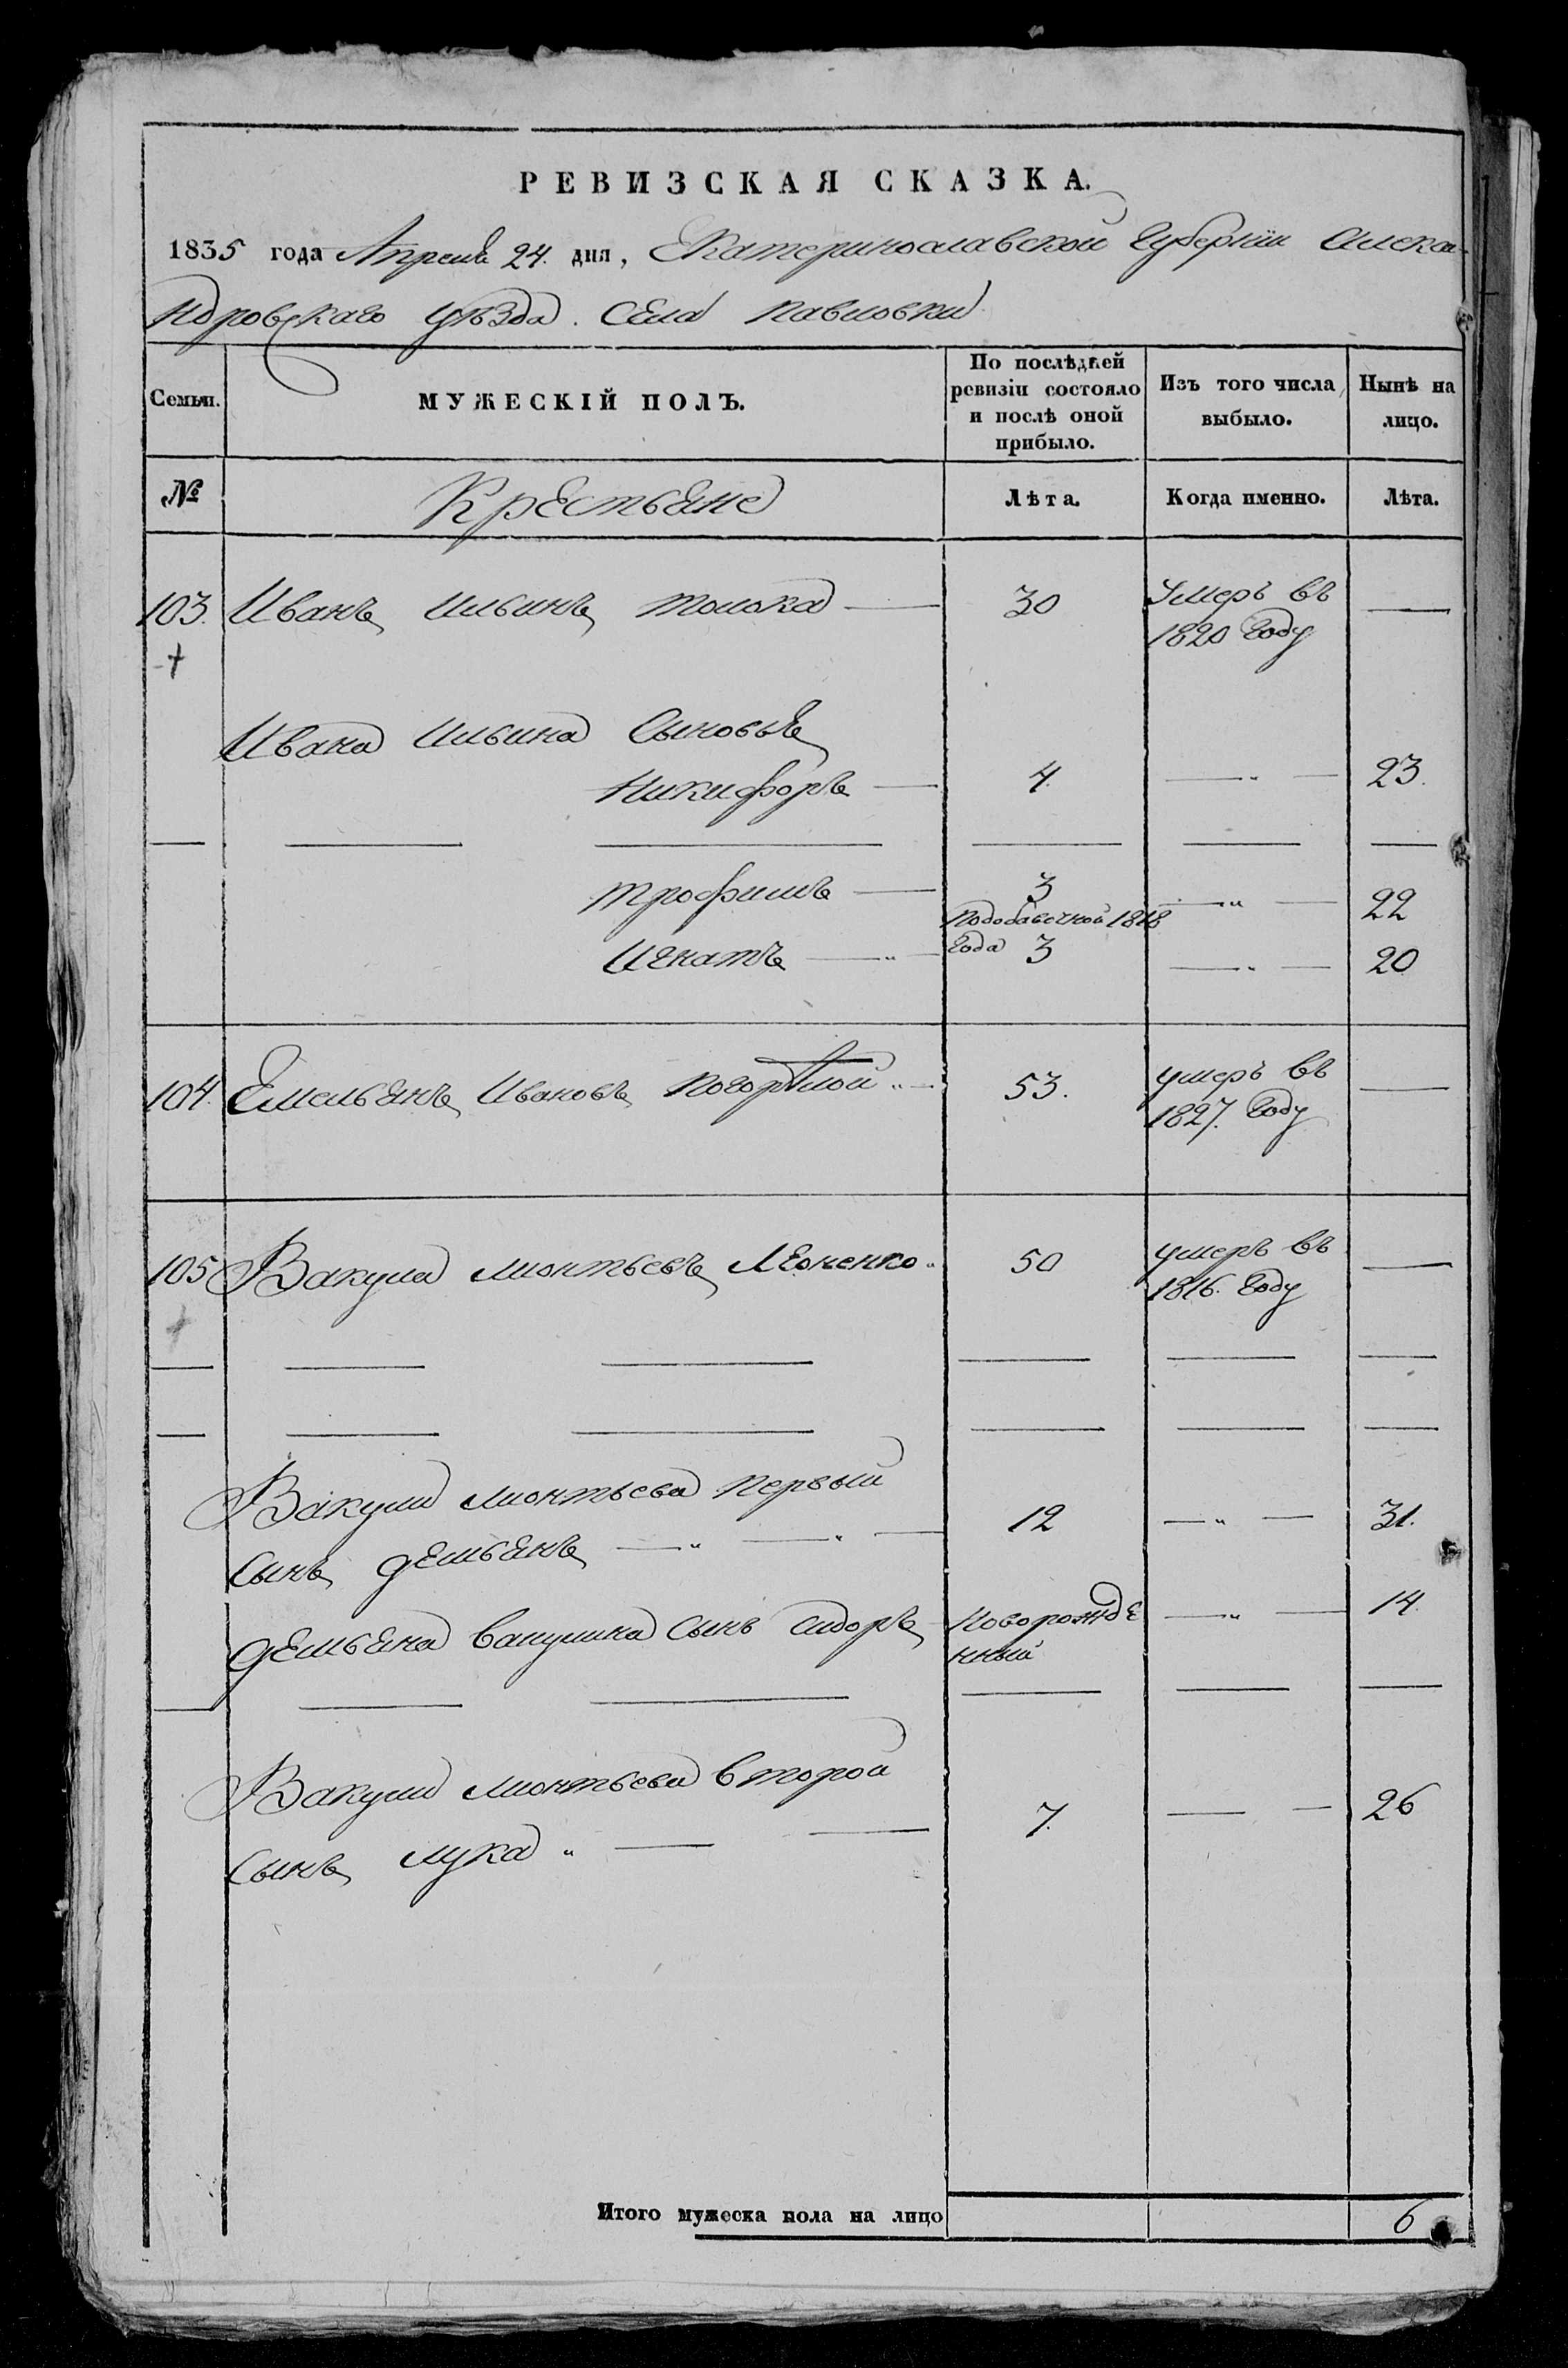 РЕВИЗСКАЯ СКАЗКА.
1835 года Апреля 24. дня, Екатеринославской Губернiи Алекса-
ндровскаго уѣзда. Села Павловки
Семьи. МУЖЕСКІЙ ПОЛЪ. По послѣдней ревизіи состояло и послѣ оной прибыло. Изъ того числа выбыло. Нынѣ на лицо.
№ Крестьяне Лѣта. Когда именно. Лѣта.
103. Иванъ Ильинъ Толока — 30 Умеръ въ 1820 году —
Ивана Ильина Сыновья
Никифоръ — 4. — „ — 23.
Трофимъ — 3 — „ — 22
Игнатъ — „ — По добавочной 1818 года 3 — „ — 20
104. Емельянъ Ивановъ Погорѣлой „ — 53. умеръ въ 1827. году —
105 Вакула Лионтьевъ Леоненко „ 50 умеръ въ 1816. году —
Вакулы Лионтьева первый
сынъ Демьянъ — „ — „ — 12 — „ — 31.
Демьяна Вакулина сынъ Сидоръ Новорожденный — „ — 14.
Вакулы Лионтьева второй
сынъ Лука „ — — 7. — — 26
Итого мужеска пола на лицо 6